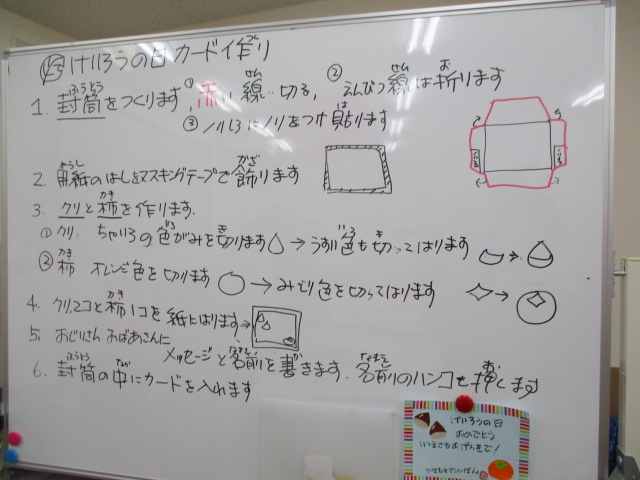 けいろうの日カード作り
1. 封筒をつくります ①赤い線…切る, ②えんぴつ線は折ります
③ノリしろにノリをつけ貼ります
2. 用紙のはしをマスキングテープで飾ります
3. クリと柿を作ります.
①クリ. ちゃいろの色がみを切ります→うすい色も切ってはります
②柿 オレンジ色を切ります→みどり色を切ってはります
4. クリ2コと柿1コを紙にはります→
5. おじいさんおばあさんに
メッセージと名前を書きます.
6. 封筒の中にカードを入れます
名前のハンコを押します
けいろうの日
おめでとう
いつまでもおげんきで!